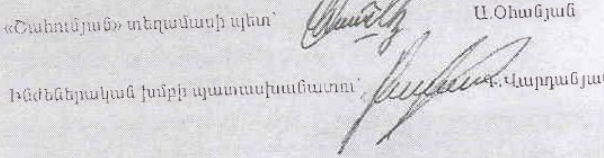 «Շահումյան» տեղամասի պետ՝ Ա.Օհանյան
Ինժեներական խմբի պատասխանատու՝ Վարդանյան